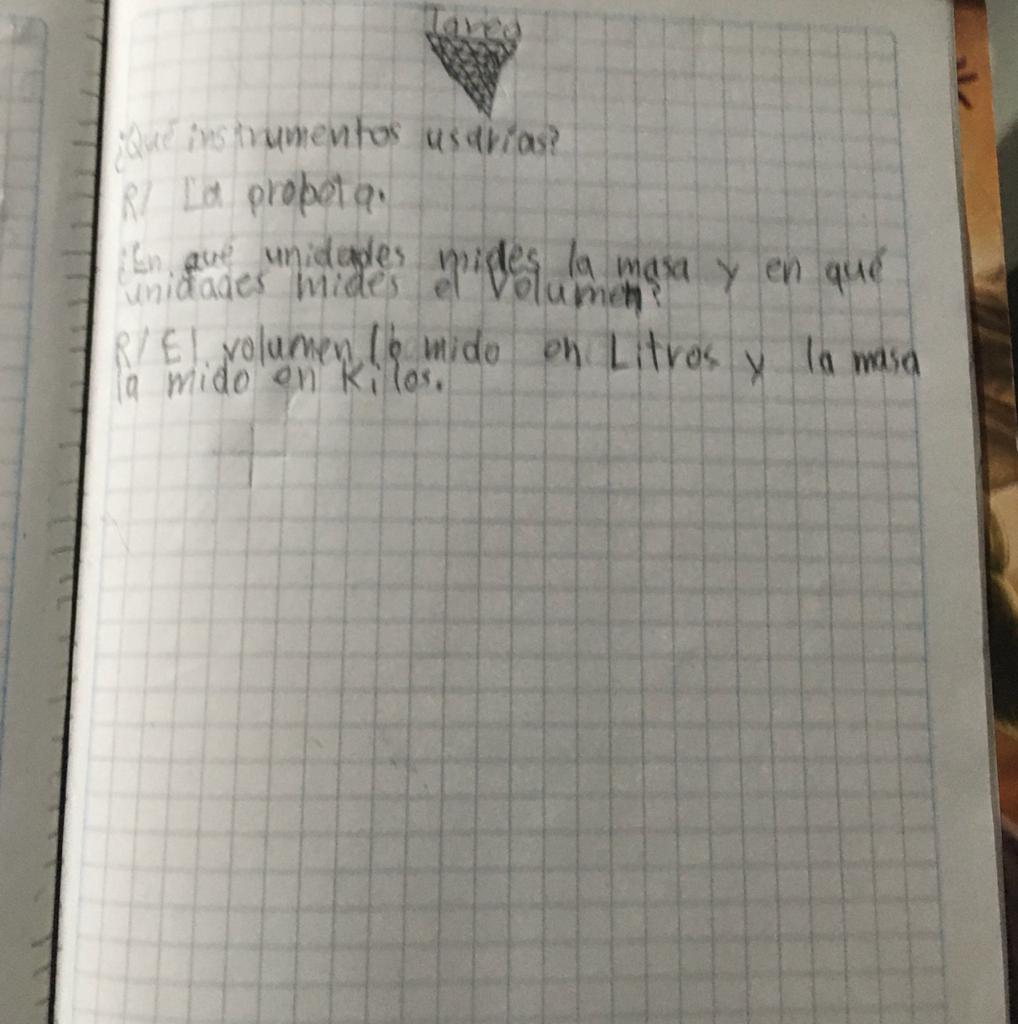 Tarea
¿Qué instrumentos usarías?
R/ La probeta.
¿En qué unidades mides la masa y en qué
unidades mides el Volumen?
R/ El volumen lo mido en Litros y la masa
la mido en Kilos.